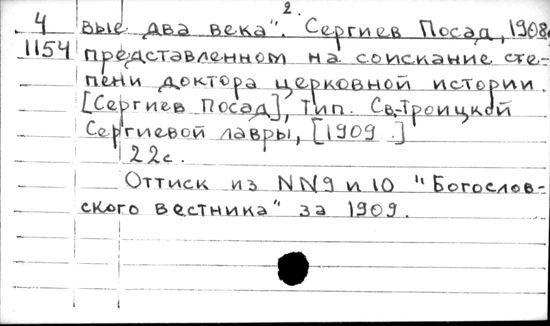 2.
4 вые два века". Сергиев Посад, 1908,
1154 представленном на соискание сте-
пени доктора церковной истории.
[Сергиев Посад], тип. Св.-Троицкой
Сергиевой лавры, [1909.]
22с.
Оттиск из NN9 и 10 "Богослов-
ского вестника" за 1909.